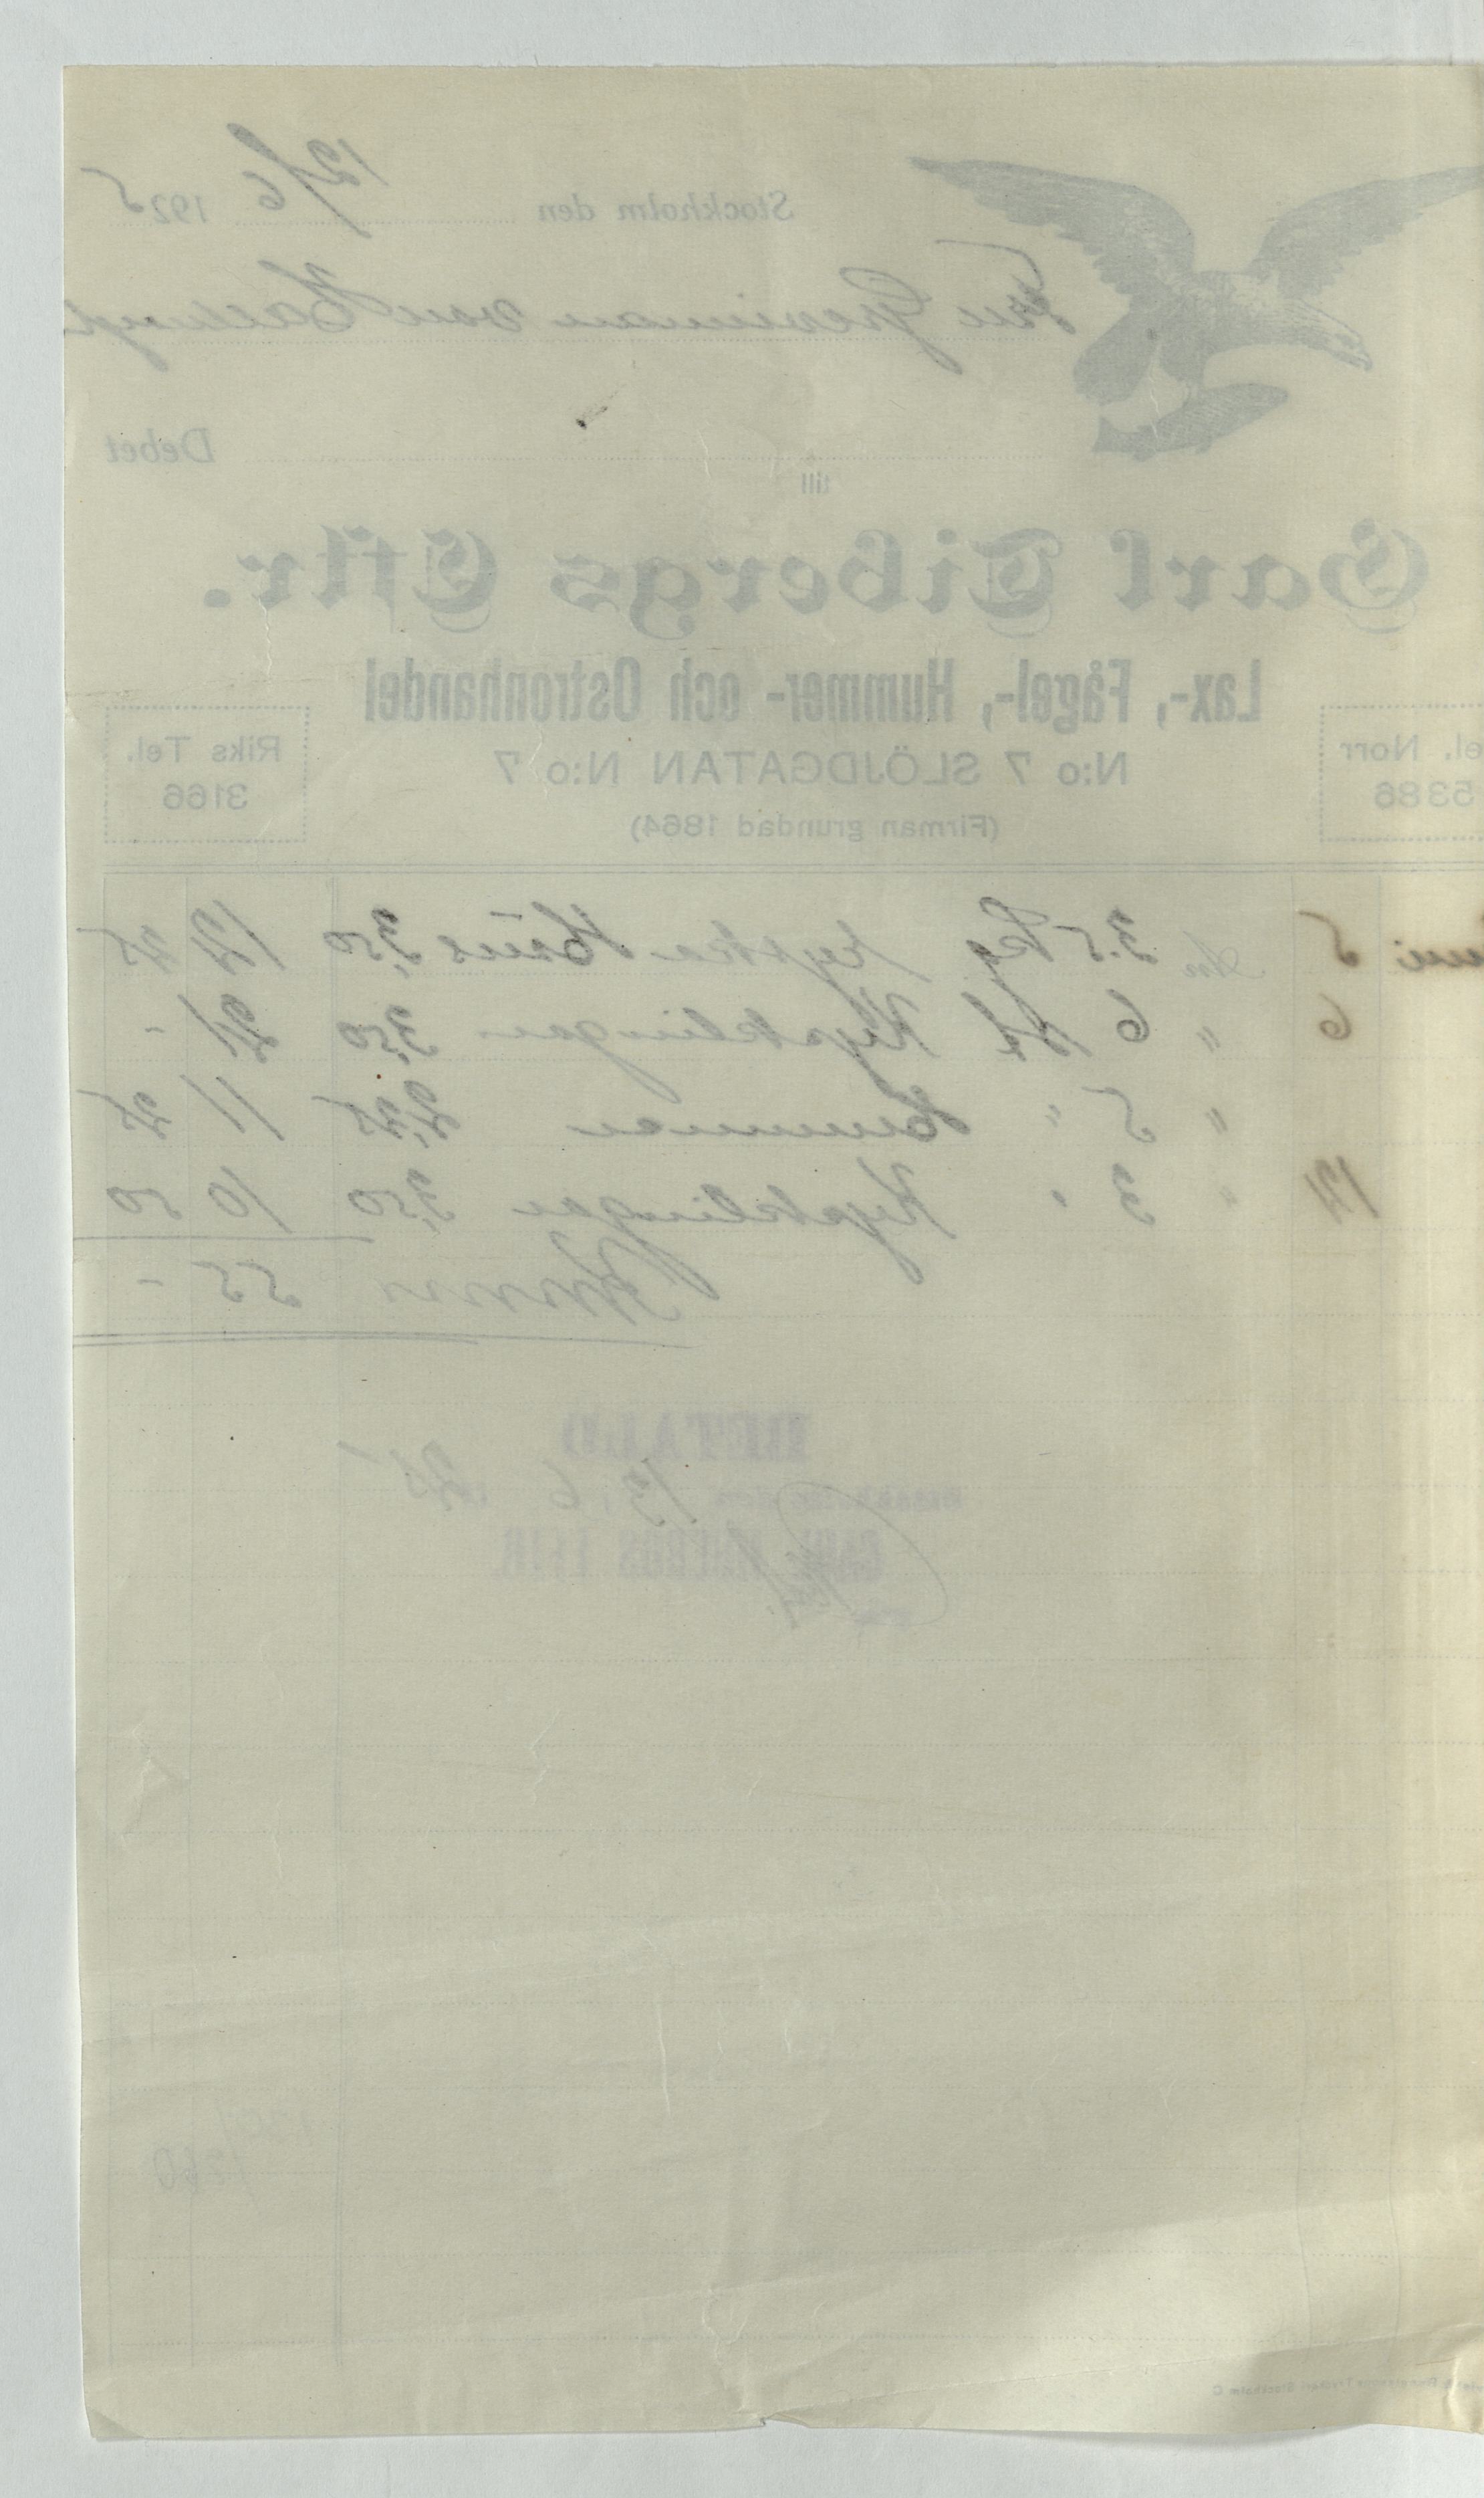 Stockholm den 12/6 1925
Fru Grevinnan von
Debet
till
Carl Tibergs Eftr.
Lax-, Fågel-, Hummer- och Ostronhandel
N:o 7 SLÖJDGATAN N:o 7
(Firman grundad 1864)
el. Norr
5386
Riks Tel.
3166
5 An 3.5 Kg Höns 3,50 12 25
6 " 6 st Kycklingar 3,50 21 -
" 5 " Hummer 2,25 11 25
12 " 3 " Kycklingar 3,50 10 50
Kronor 55 -
BETALD
Stockholm den 13/6 1925
CARL TIBERGS EFTR.